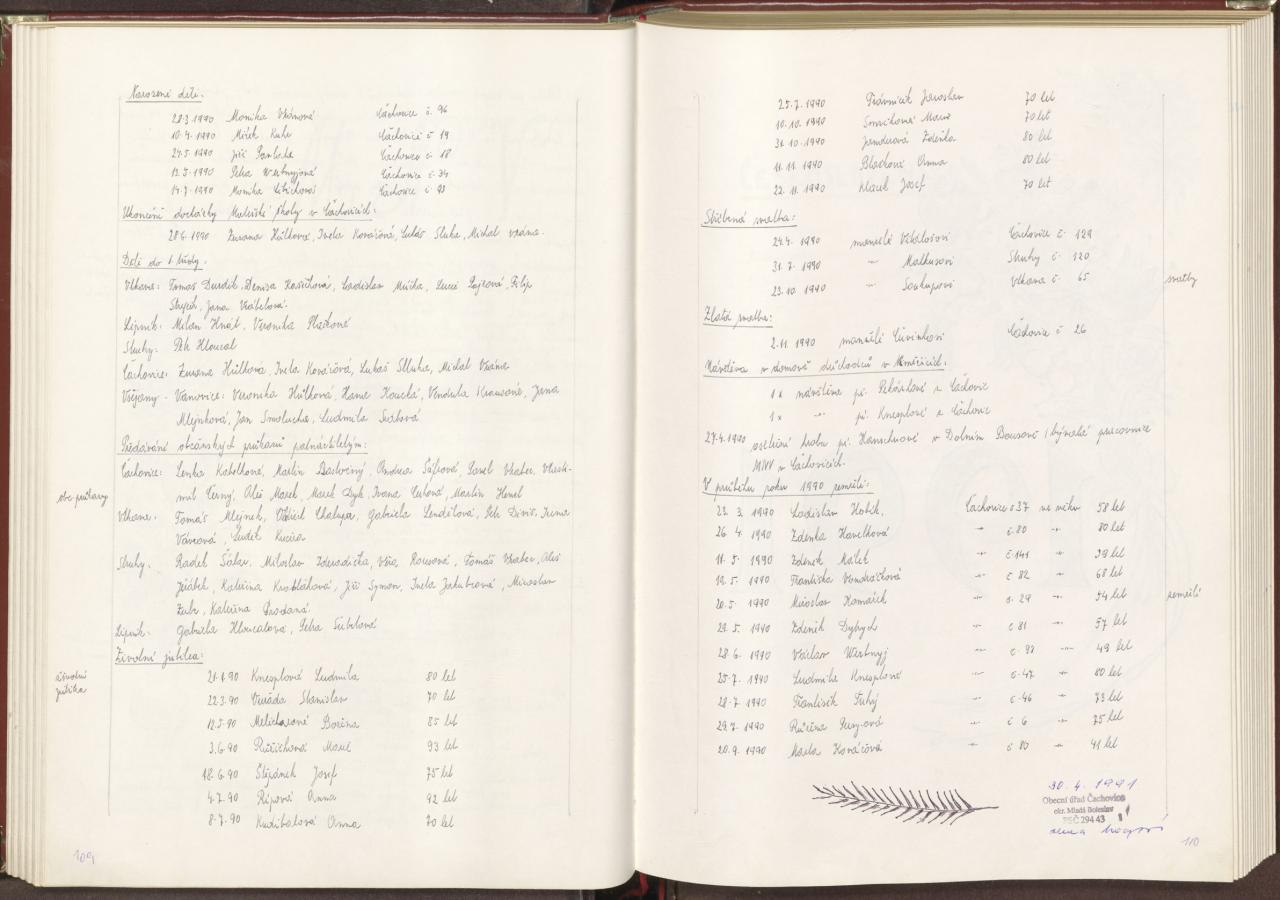 Narození dětí.
28.3.1990 Monika Vránová Čáchovice č. 96
10.4.1990 Mirek Kuhr Čáchovice č 19
24.5.1990 Jiří Čáchovice č. 18
12.5.1990 Petra Werbnyjová Čáchovice č. 34
14.7.1990 Monika Čáchovice č. 93
Ukončení docházky Mateřské školy v Čáchovicích:
28.6.1990 Zuzana Hůlková, Iveta Kovářová, Lukáš Sluka, Michal Vrána.
Děti do 1. třídy.
Vlkava: Tomáš Durdil, Denisa Kasíková, Ladislav Mička, Lucie Filip
Jana Vrábelová.
Lipník: Milan Hnát, Veronika
Struhy: Petr Hloucal
Čachovice: Zuzana Hůlková, Iveta Kovářová, Lukáš Slluka, Michal Vrána
Všejany - Vanovice: Veronika Hůlková, Hana Koucká, Vendula Krausová, Jana
Mlejnková, Jan Smolucha, Ludmila
Předávání občanských průkazů patnáctiletým:
Čáchovice: Lenka Kabelková, Martin Andrea Šafrová, Pavel Vrabec, Vlasti-
obč. průkazy
mil Černý, Aleš Marek, Marek Dyk, Ivana Martin Hemel
Vlkava: Tomáš Mlejnek, Oldřich Chalupa, Gabriela Petr Diviš, Irena
Vávrová, Luděk Kučera
Struhy. Radek Šálar, Miloslav Zderadička, Věra Tomáš Vrabec, Aleš
Jeřábek, Kateřina Jiří Symon, Iveta Jakubcová, Miroslav
Zubr, Kateřina Prodaná
Lipník. Gabriela Hloucalová, Petra
Životní jubilea:
životní
jubilea
21.1.90 Knesplová Ludmila 80 let
22.3.90 Stanislav 70 let
12.5.90 Melicharová Božena 85 let
3.6.90 Růžičková Marie 93 let
18.6.90 Štěpánek Josef 75 let
4.7.90 Řípová Anna 92 let
8.7.90 Kudibalová Anna 70 let
109
25.7.1990 Trávníček Jaroslav 70 let
10.10.1990 Marie 70 let
31.10.1990 Janderová Zdenka 80 let
11.11.1990 Blažková Anna 80 let
22.11.1990 Klacek Josef 70 let
Stříbrná svatba:
24.4.1990 manželé Čachovice č. 129
31.7.1990 -"- Malkusovi Struhy č. 120
23.10.1990 -"- Soukupovi Vlkava č. 65
svatby
Zlatá svatba:
2.11.1990 manželé Čachovice č. 26
Návštěva v domově důchodců v
1x návštěva pí. z Čachovic
1x -"- pí. Knesplové z Čachovic
27.4.1990 hrobu pí. v Dolním Bousově (bývalé pracovnice
MNV v Čachovicích.
V průběhu roku 1990 zemřeli:
22.3.1990 Ladislav Čachovice č 37 ve věku 58 let
26.4.1990 Zdenka Havelková -"- č. 80 -"- 80 let
11.5.1990 Zdeněk Málek -"- č. 141 -"- 39 let
19.5.1990 Františka Vondráčková -"- č 82 -"- 68 let
20.5.1990 Miroslav Komárek -"- č. 29 -"- 54 let
zemřelí
29.5.1990 Zdeněk Dybych -"- č 81 -"- 57 let
28.6.1990 Václav Werbnyj -"- č. 93 -"- 49 let
25.7.1990 Ludmila Knesplová -"- č. 47 -"- 80 let
28.7.1990 František Tuhý -"- č. 46 -"- 73 let
29.7.1990 Růžena -"- č 6 -"- 75 let
20.9.1990 Marta Kovářová -"- č 80 -"- 41 let
30.4.1991
Obecní úřad Čachovice
okr. Mladá Boleslav
PSČ 294 43 1
110